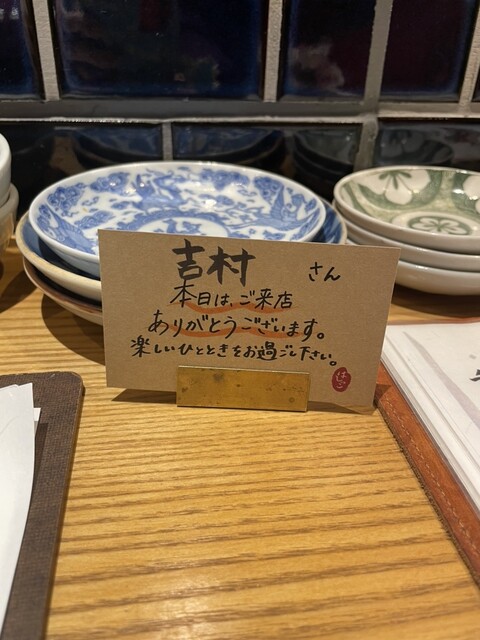 吉村 さん
本日は、ご来店
ありがとうございます。
楽しいひとときをお過ごし下さい。